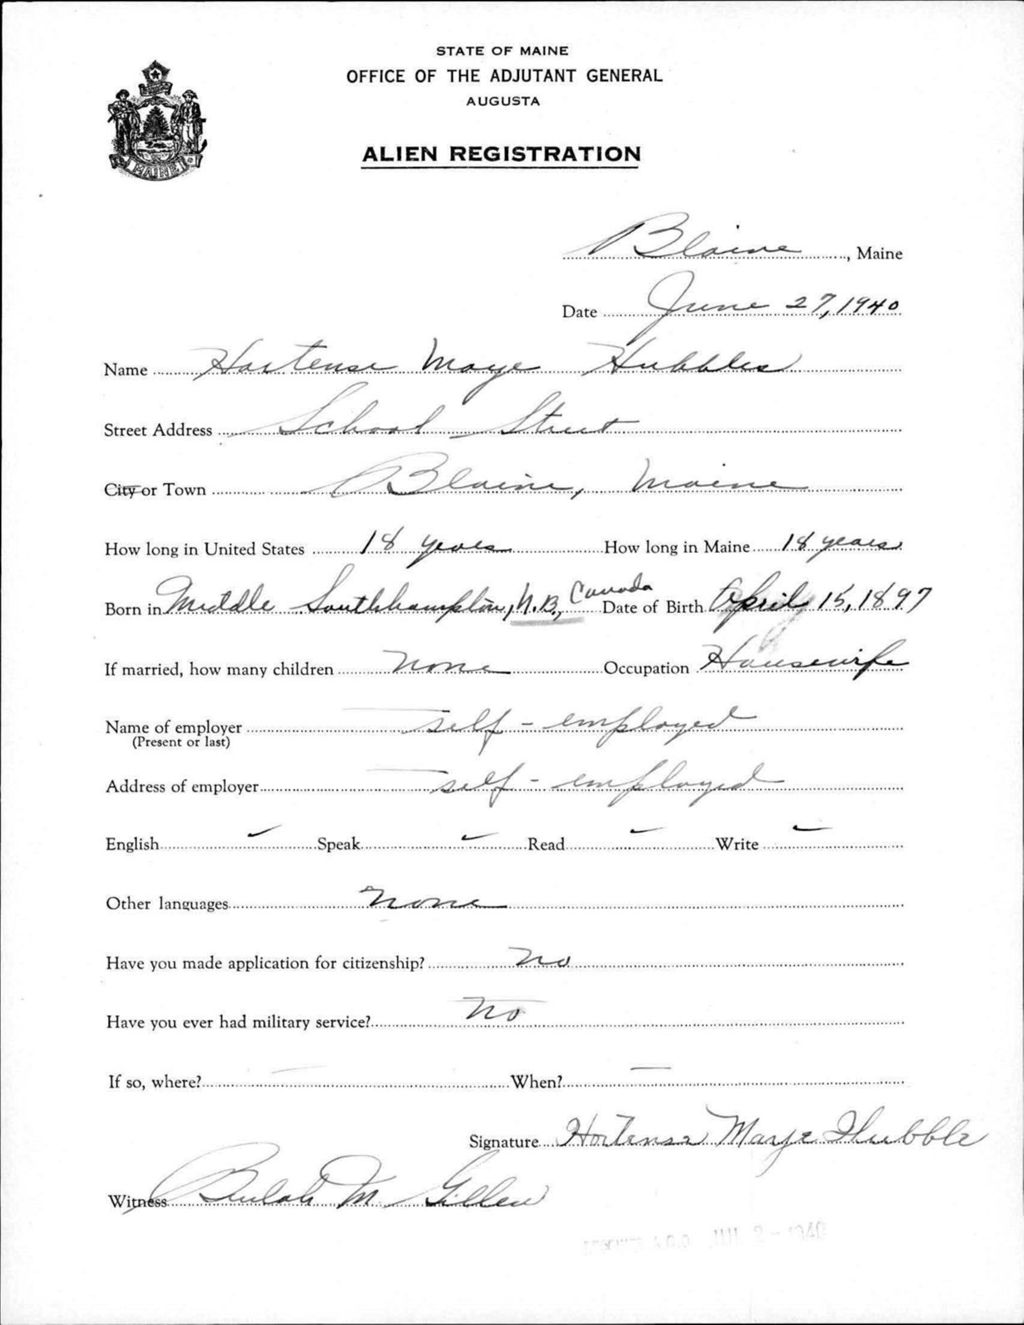 STATE OF MAINE
OFFICE OF THE ADJUTANT GENERAL
AUGUSTA
ALIEN REGISTRATION
MAINE
Blaine, Maine
Date June 27, 1940
Name Hortense Maye Hubbles
Street Address School Street
City or Town Blaine, Maine
How long in United States 18 years How long in Maine 18 years
Born in Middle Southampton, N.B., Canada Date of Birth April 15, 1897
If married, how many children none Occupation Housewife
Name of employer self-employed
(Present or last)
Address of employer self-employed
English ✓ Speak ✓ Read ✓ Write ✓
Other languages none
Have you made application for citizenship? no
Have you ever had military service? no
If so, where? — When? —
Signature Hortense Maye Hubble
Witness Beulah M. Gillen
A.G.O. JUL 2 - 1940